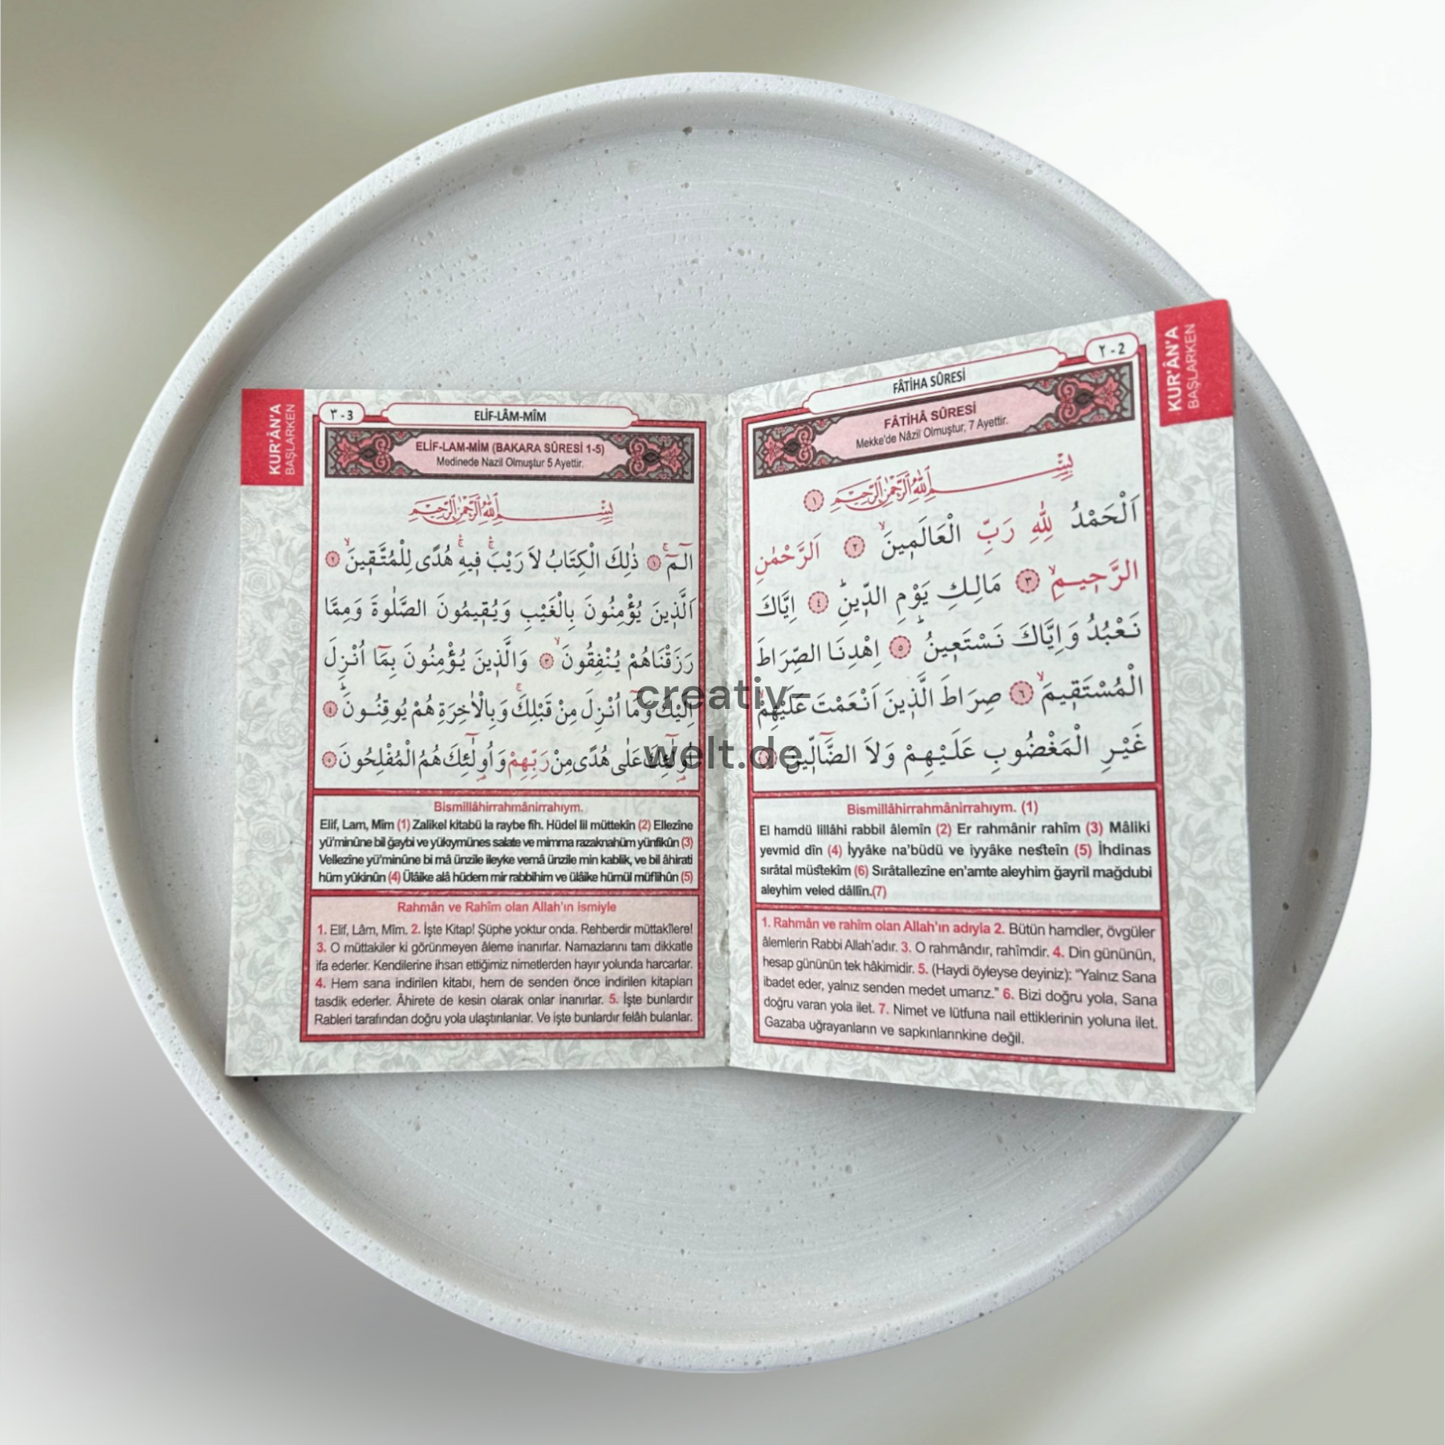 KUR'ÂN'A
BAŞLARKEN
٢ - 2
FÂTİHA SÛRESİ
FÂTİHÂ SÛRESİ
Mekke'de Nâzil Olmuştur, 7 Ayettir.
بِسْمِ اللّٰهِ الرَّحْمٰنِ الرَّحِيمِ ١
اَلْحَمْدُ لِلّٰهِ رَبِّ الْعَالَمِينَۙ ٢ اَلرَّحْمٰنِ
الرَّحِيمِۙ ٣ مَالِكِ يَوْمِ الدِّينِۜ ٤ اِيَّاكَ
نَعْبُدُ وَاِيَّاكَ نَسْتَعِينُۜ ٥ اِهْدِنَا الصِّرَاطَ
الْمُسْتَقِيمَۙ ٦ صِرَاطَ الَّذِينَ اَنْعَمْتَ عَلَيْهِمْۙ
غَيْرِ الْمَغْضُوبِ عَلَيْهِمْ وَلَا الضَّٓالِّينَ ٧
Bismillâhirrahmânirrahıym. (1)
El hamdü lillâhi rabbil âlemîn (2) Er rahmânir rahîm (3) Mâliki
yevmid dîn (4) İyyâke na'büdü ve iyyâke nesteîn (5) İhdinas
sırâtal müstekîm (6) Sırâtallezîne en'amte aleyhim ğayril mağdubi
aleyhim veled dâllîn.(7)
1. Rahmân ve rahîm olan Allah'ın adıyla 2. Bütün hamdler, övgüler
âlemlerin Rabbi Allah'adır. 3. O rahmândır, rahîmdir. 4. Din gününün,
hesap gününün tek hâkimidir. 5. (Haydi öyleyse deyiniz): "Yalnız Sana
ibadet eder, yalnız senden medet umarız." 6. Bizi doğru yola, Sana
doğru varan yola ilet. 7. Nimet ve lütfuna nail ettiklerinin yoluna ilet.
Gazaba uğrayanların ve sapkınlarınkine değil.
KUR'ÂN'A
BAŞLARKEN
٣ - 3
ELİF-LÂM-MÎM
ELİF-LAM-MİM (BAKARA SÛRESİ 1-5)
Medinede Nazil Olmuştur 5 Ayettir.
بِسْمِ اللّٰهِ الرَّحْمٰنِ الرَّحِيمِ
الٓمٓۚ ١ ذٰلِكَ الْكِتَابُ لَا رَيْبَۚ فِيهِۚ هُدًى لِلْمُتَّقِينَۙ ٢
اَلَّذِينَ يُؤْمِنُونَ بِالْغَيْبِ وَيُقِيمُونَ الصَّلٰوةَ وَمِمَّا
رَزَقْنَاهُمْ يُنْفِقُونَۙ ٣ وَالَّذِينَ يُؤْمِنُونَ بِمَٓا اُنْزِلَ
اِلَيْكَ وَمَٓا اُنْزِلَ مِنْ قَبْلِكَۚ وَبِالْاٰخِرَةِ هُمْ يُوقِنُونَۜ ٤
اُو۬لٰٓئِكَ عَلٰى هُدًى مِنْ رَبِّهِمْ وَاُو۬لٰٓئِكَ هُمُ الْمُفْلِحُونَ ٥
Bismillâhirrahmânirrahıym.
Elif, Lam, Mîm (1) Zalikel kitabü la raybe fîh. Hüdel lil müttekîn (2) Ellezîne
yü'minûne bil ğaybi ve yükıymünes salate ve mimma razaknahüm yünfikûn (3)
Vellezîne yü'minûne bi mâ ünzile ileyke vemâ ünzile min kablik, ve bil âhirati
hüm yûkinûn (4) Ülâike alâ hüdem mir rabbihim ve ülâike hümül müflihûn (5)
Rahmân ve Rahîm olan Allah'ın ismiyle
1. Elif, Lâm, Mîm. 2. İşte Kitap! Şüphe yoktur onda. Rehberdir müttakîlere!
3. O müttakiler ki görünmeyen âleme inanırlar. Namazlarını tam dikkatle
ifa ederler. Kendilerine ihsan ettiğimiz nimetlerden hayır yolunda harcarlar.
4. Hem sana indirilen kitabı, hem de senden önce indirilen kitapları
tasdik ederler. Âhirete de kesin olarak onlar inanırlar. 5. İşte bunlardır
Rableri tarafından doğru yola ulaştırılanlar. Ve işte bunlardır felâh bulanlar.
creativ-
welt.de